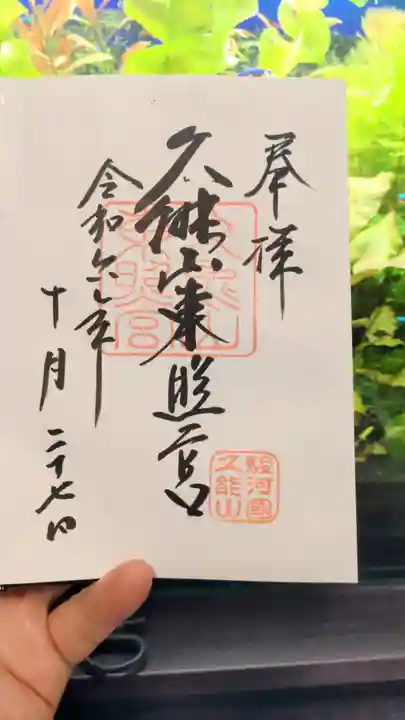 奉拝
久能山東照宮
駿河國
久能山
令和六年
十月二十七日